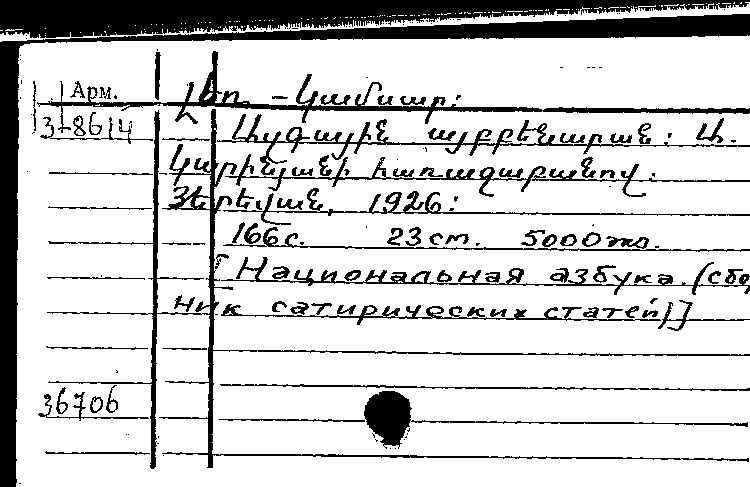 Арм.
3-8614
Լեո-Կամսար:
Ազգային այբբենարան: Ա.
Կարինյանի հառաջաբանով.
Յերեվան, 1926:
166с. 23см. 5000экз.
[Национальная азбука. (сбор
ник сатирических статей)]
36706